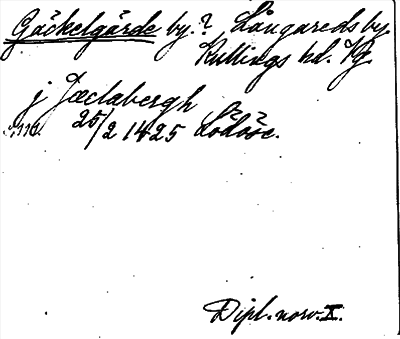 Gäckelgärde by.? Långareds by.
Kullings hd. Vg.
j Jæclabergh
25/2 1425 Lödöse.
Dipl. norv. X.